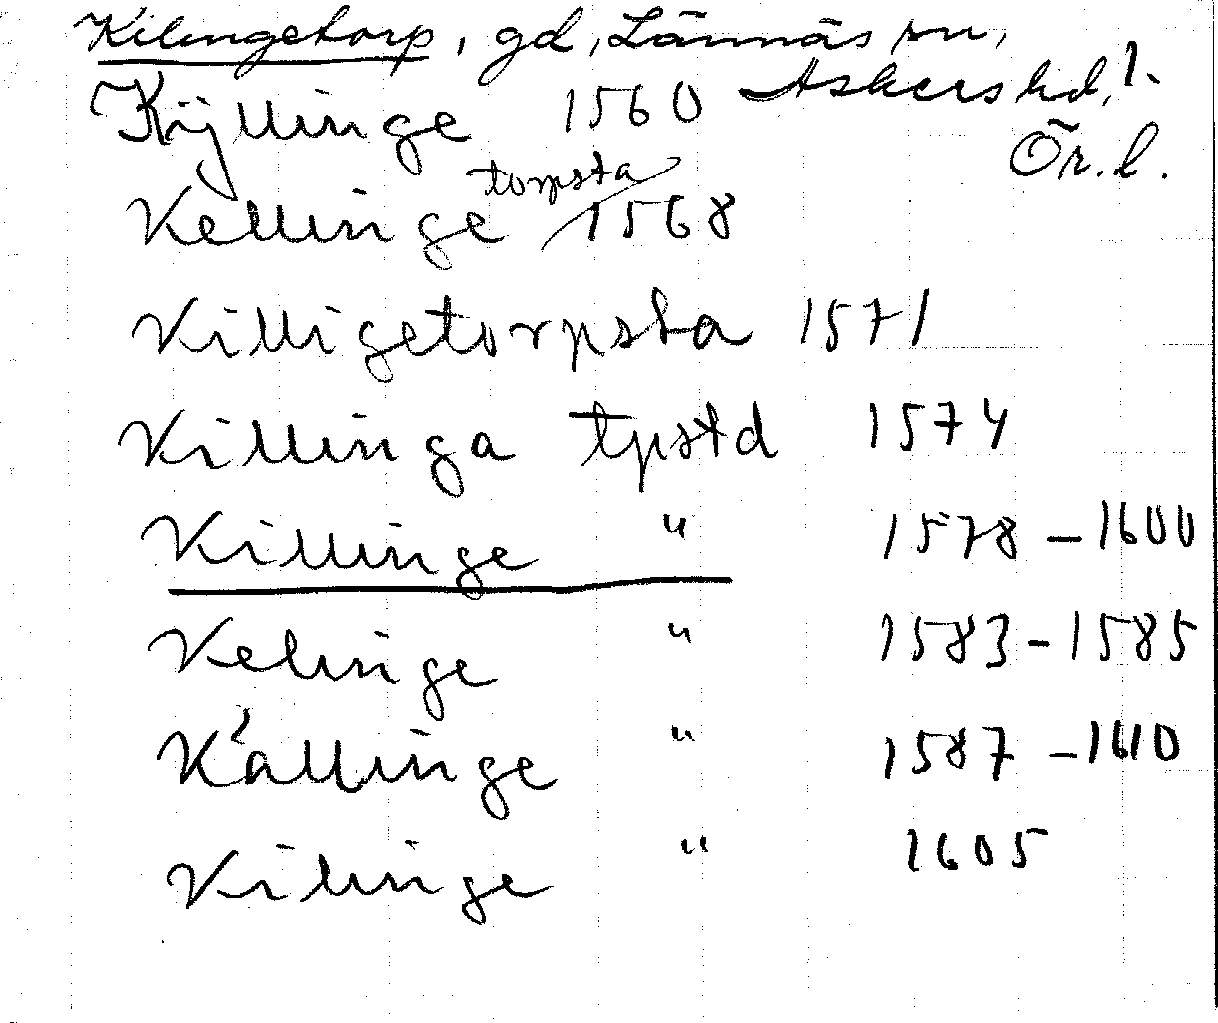 Kilingetorp, gd, Lännäs sn,
Askers hd, 1.
Ör. l.
Kÿllinge 1560
Kellinge torpsta 1568
Killigetorpsta 1571
Killinga tpstd 1574
Killinge " 1578 – 1600
Kelinge " 1583 – 1585
Källinge " 1587 – 1610
Kilinge " 1605